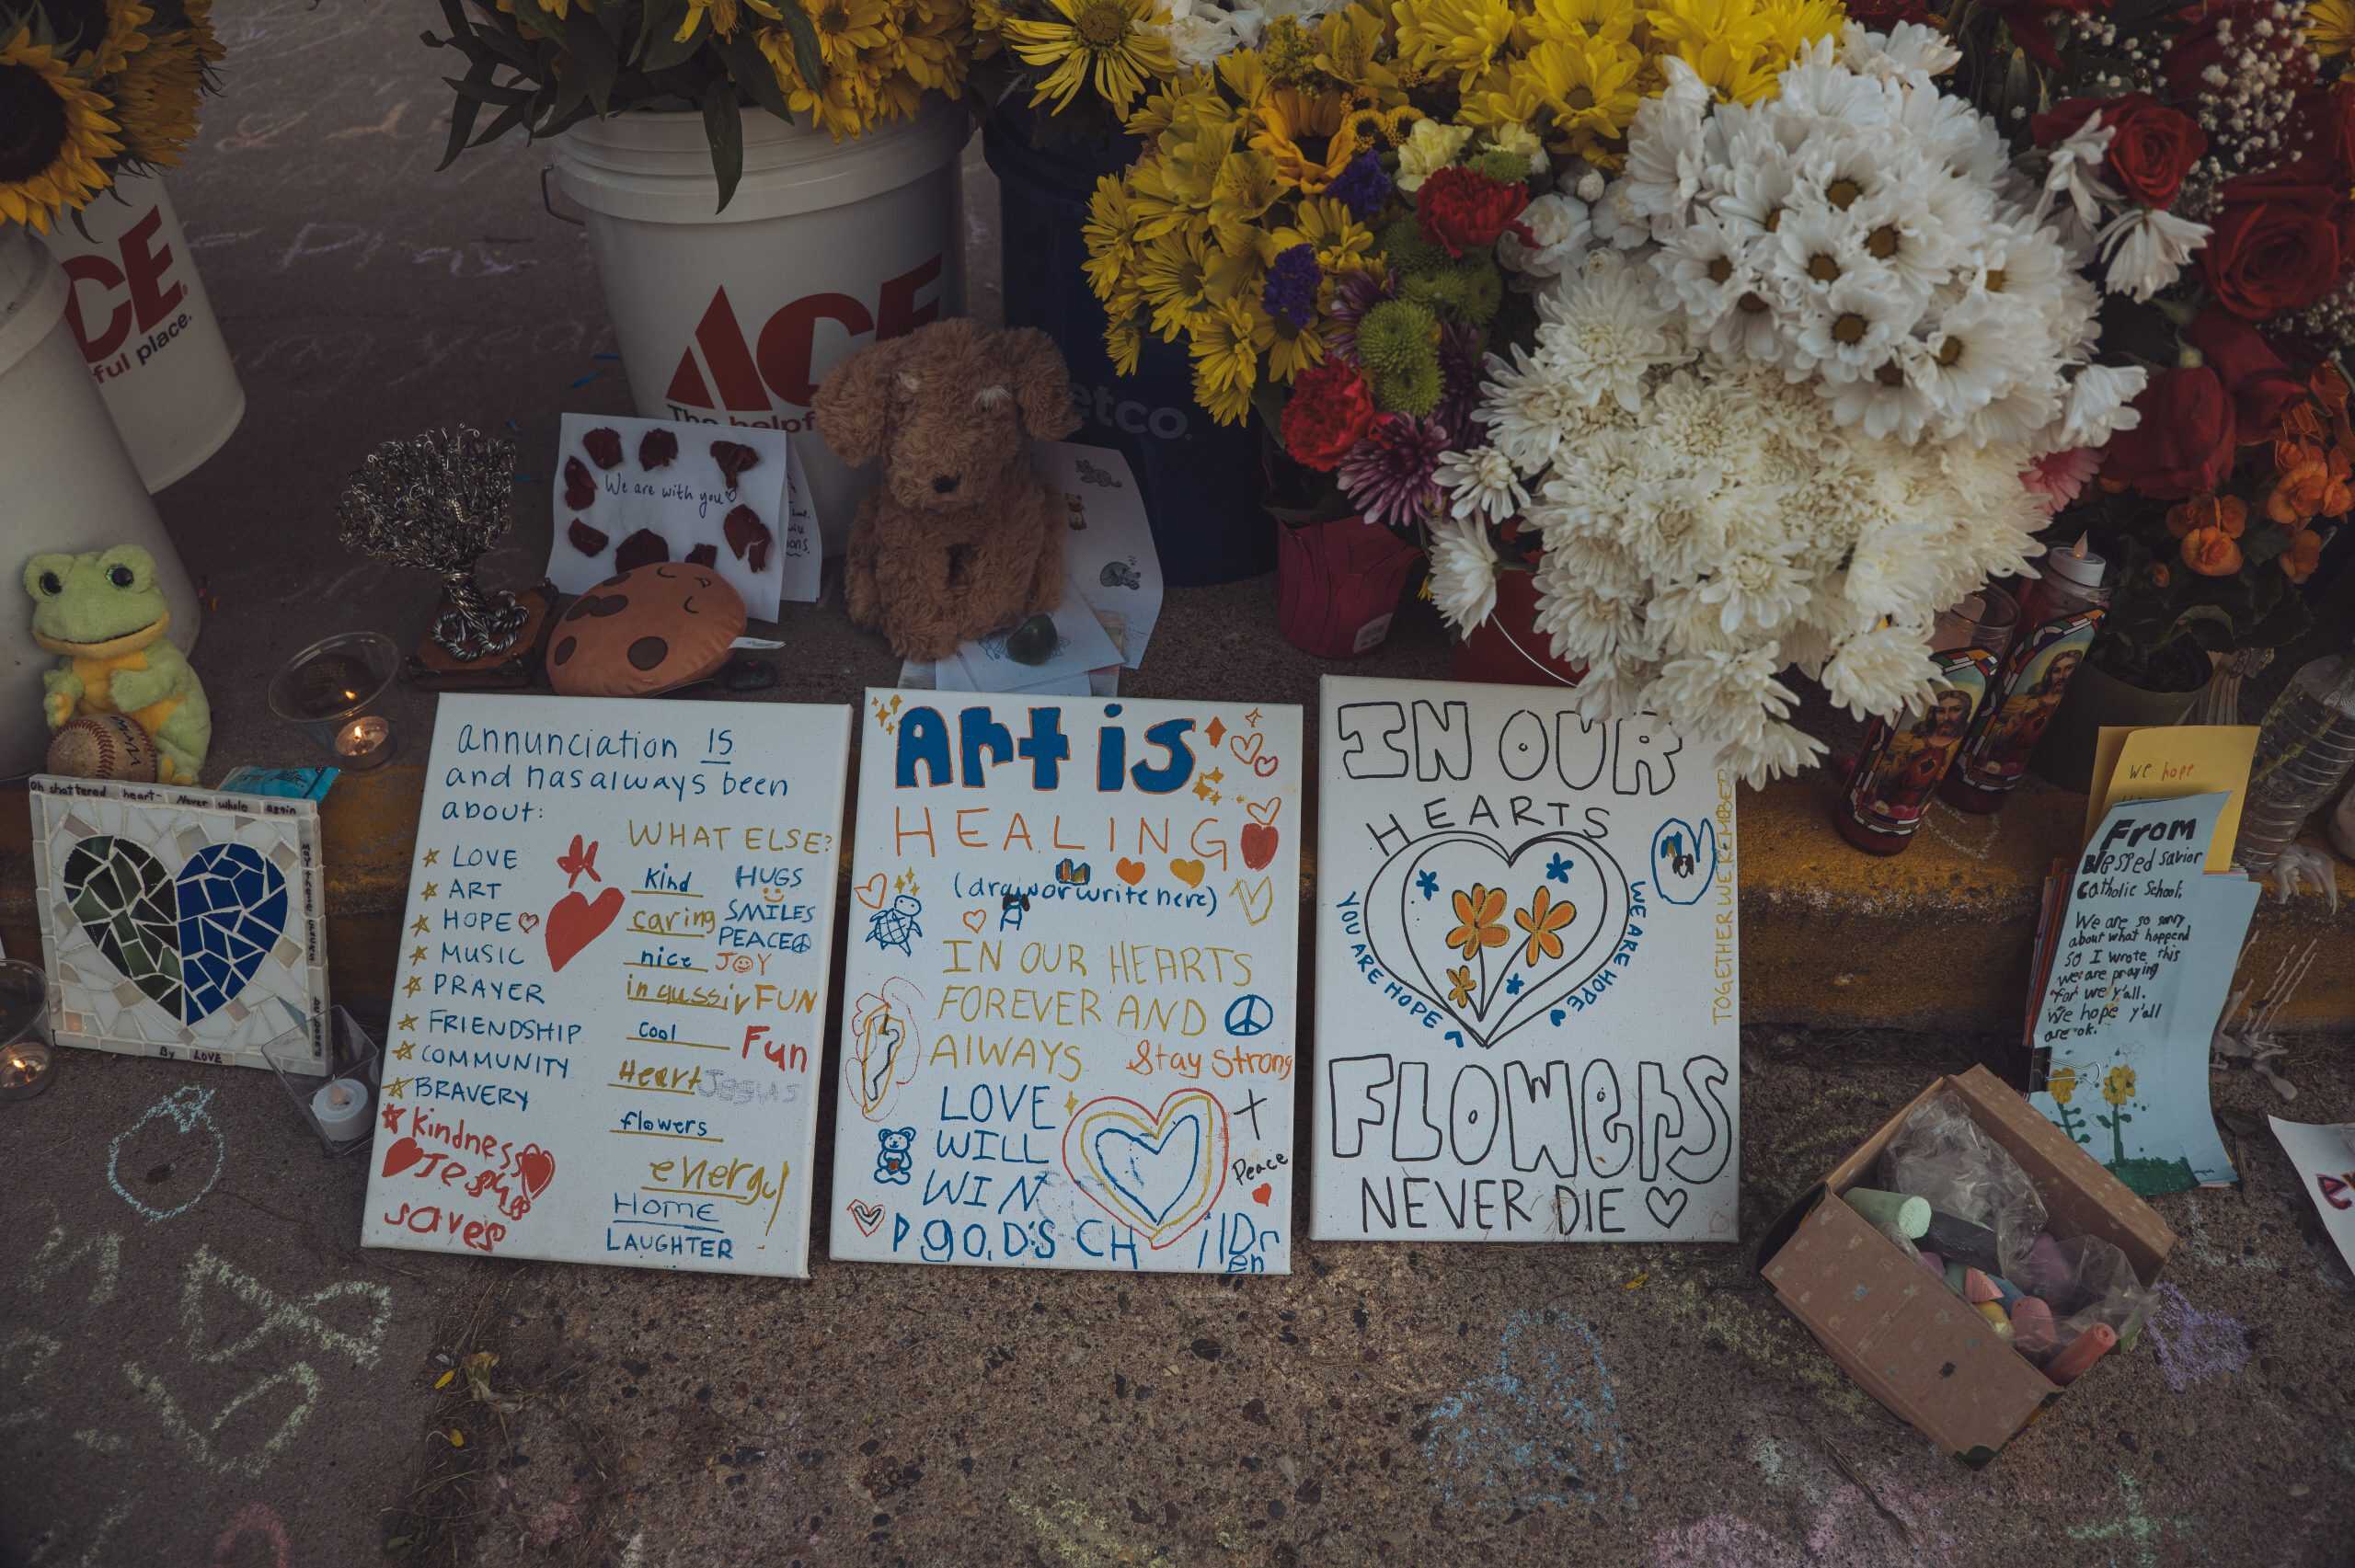 CE
ful place.
ACE
The helpf
etco
We are with you
Oh shattered heart- Never whole again
By LOVE
annunciation IS
and has always been
about:
LOVE
ART
HOPE
MUSIC
PRAYER
FRIENDSHIP
COMMUNITY
BRAVERY
Kindness
Jesus
saves
WHAT ELSE?
Kind
caring
nice
inqussiv
Cool
Heart
flowers
energy
HOME
LAUGHTER
HUGS
SMILES
PEACE
JOY
FUN
Fun
Jesus
Art is
HEALING
(draw or write here)
IN OUR HEARTS
FOREVER AND
AlWAYS
Stay Strong
LOVE
WILL
WIN
Peace
gO.D'S CHilDren
IN OUR
HEARTS
YOU ARE HOPE
WE ARE HOPE
TOGETHER WE REMEMBER
FLOWerS
NEVER DIE
we hope
From
Blessed Savior
Catholic School,
We are so sorry
about what happend
so I wrote this
we are praying
for we y'all.
We hope y'all
are ok.